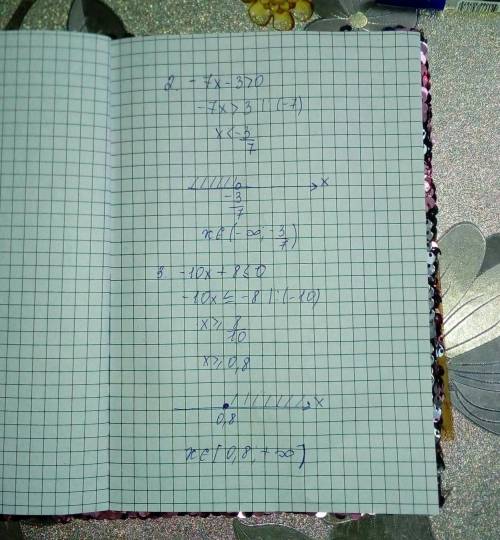 2. -7x-3>0
-7x>3 |:(-7)
x<-3/7
x
-3/7
x∈(-∞,-3/7)
3. -10x+8≤0
-10x≤-8 |:(-10)
x≥8/10
x≥0,8
x
0,8
x∈[0,8,+∞]